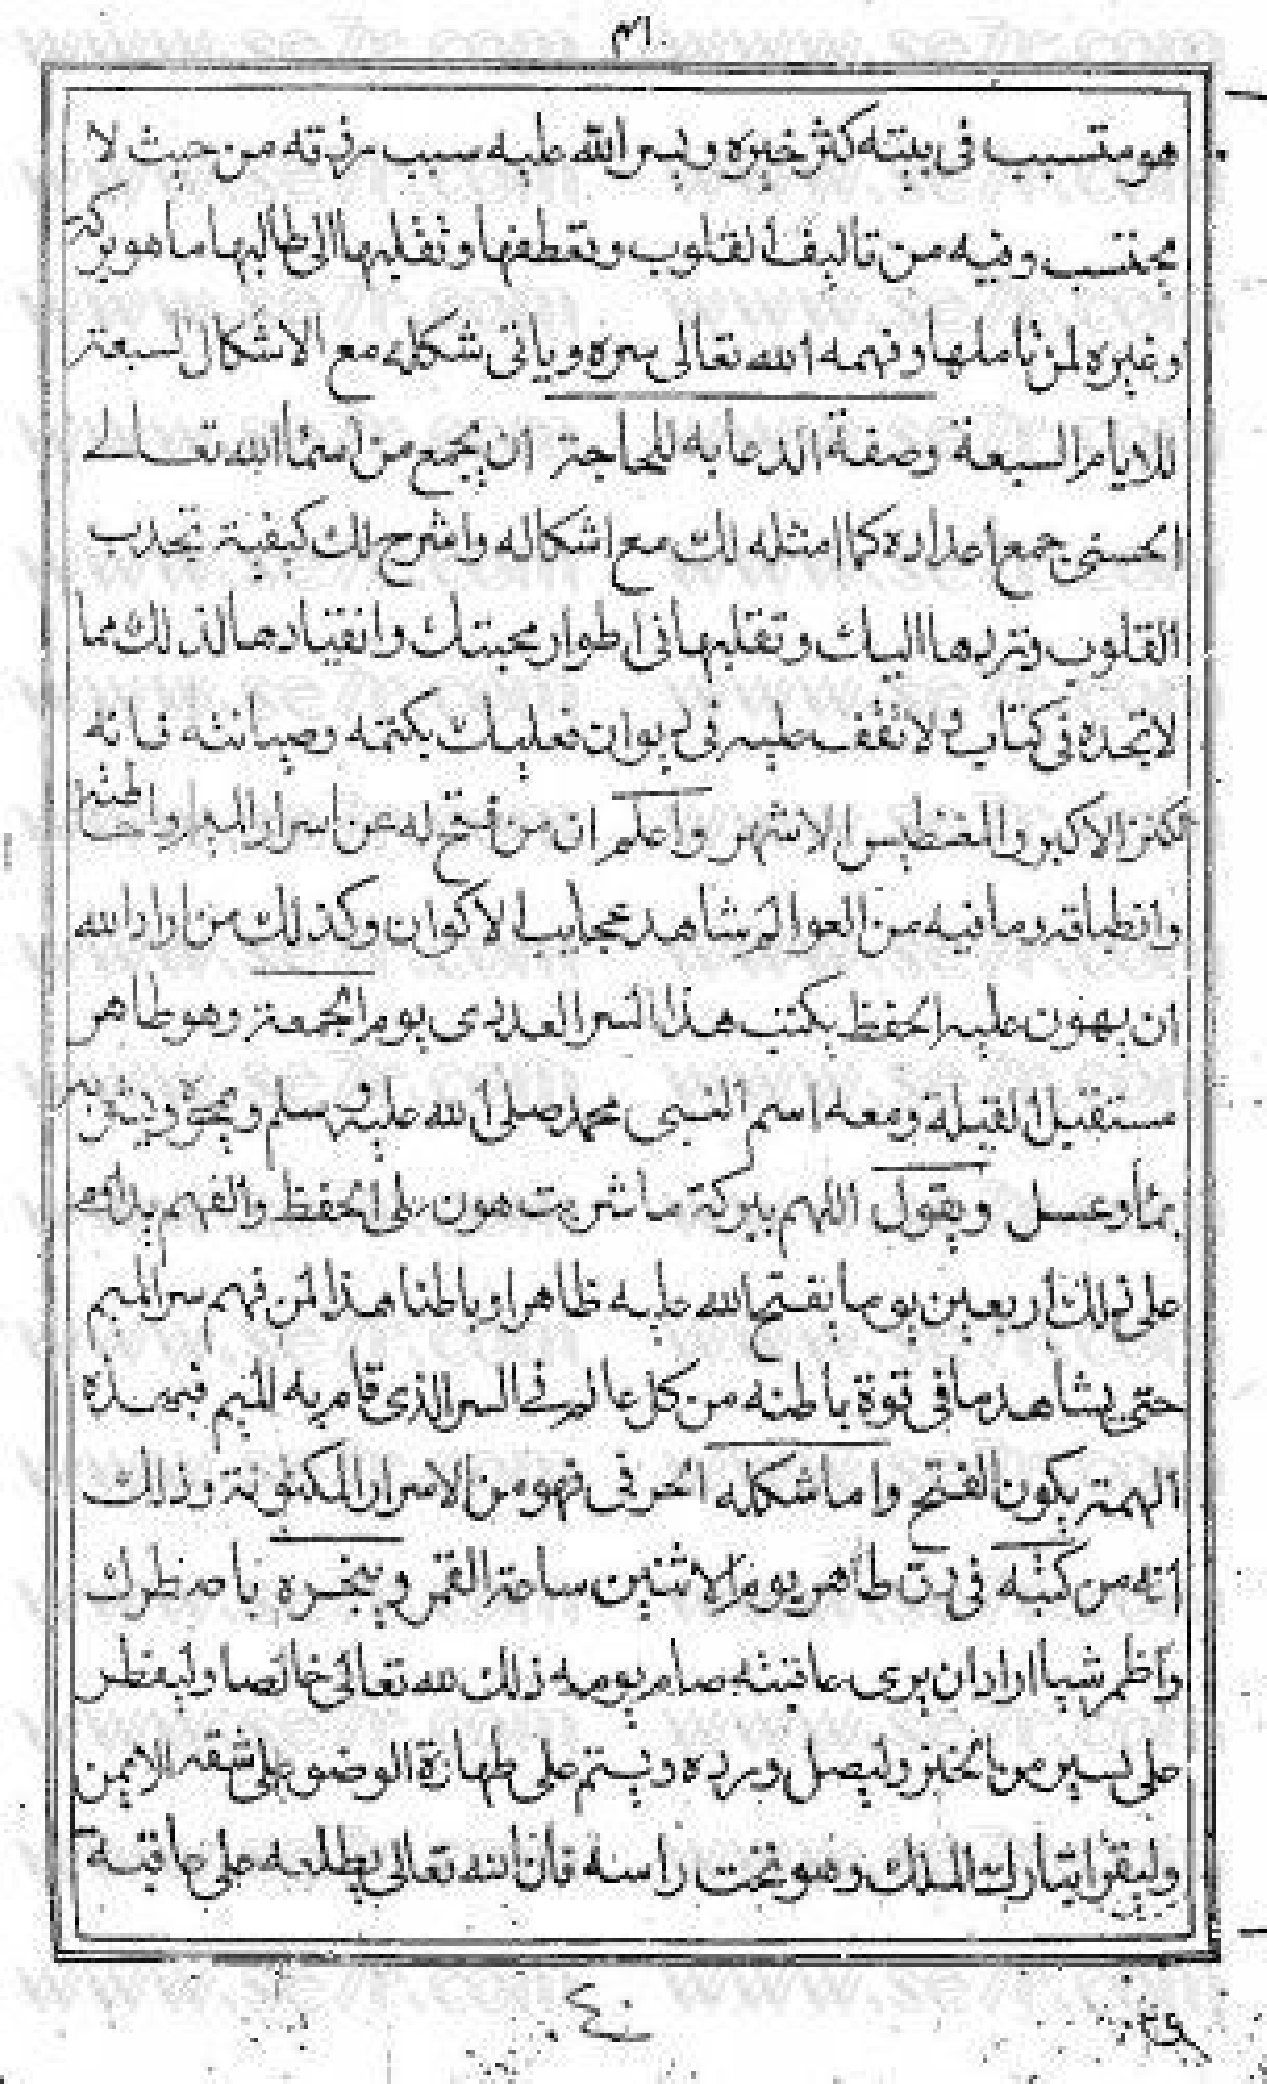 هو متسبب فى بيته كثر خيره ويسر الله عليه سبب رزقه من حيث لا
يحتسب وفيه من تاليف القلوب وتعطفها وتقلبها الى طالبها ما هو بركة
وغيره لمن تاملها وفهمه الله تعالى سره وياتى شكله مع الاشكال السبعة
للايام السبعة وصفة الدعا به للحاجة ان يجمع من اسما الله تعالى
الحسنى جمع اعداده كما امثله لك مع اشكاله واشرح لك كيفية تجذب
القلوب وتردها اليك وتقلبها فى اطوار محبتك وانقيادها لذلك مما
لا تجده فى كتاب ولا تقف عليه فى ديوان فعليك بكتمه وصيانته فانه
الكنز الاكبر والمغنطيس الاشهر واعلم ان من فتح له عن اسرار الميم
وانطباقه وما فيه من العوالم شاهد عجايب الاكوان وكذلك من اراد الله
ان يهون عليه الحفظ يكتب هذا السر العددى يوم الجمعة وهو طاهر
مستقبل القبلة ومعه اسم النبى محمد صلى الله عليه وسلم ويمحوه ويشربه
بما وعسل ويقول اللهم ببركة ما شربت هون على الحفظ والفهم يداوم
على ذلك اربعين يوما يفتح الله عليه ظاهرا وباطنا هذا لمن فهم سر الميم
حتى يشاهد ما فى قوة باطنه من كل عالم فى السر الذى قام به الميم فبهذه
الهمة يكون الفتح واما شكله الحرفى فهو من الاسرار المكنونة وذلك
انه من كتبه فى رق طاهر يوم الاثنين ساعة القمر ويبخره با مصطرك
واظمر شيا اراد ان يرى عاقبته صام يومه ذلك لله تعالى خالصا وليفطر
على يسير من الخبز وليصل ورده وينم على طهارة الوضو على شقه الايمن
وليقرا تبارك الملك وهو تحت راسه فان الله تعالى يطلعه على عاقبة